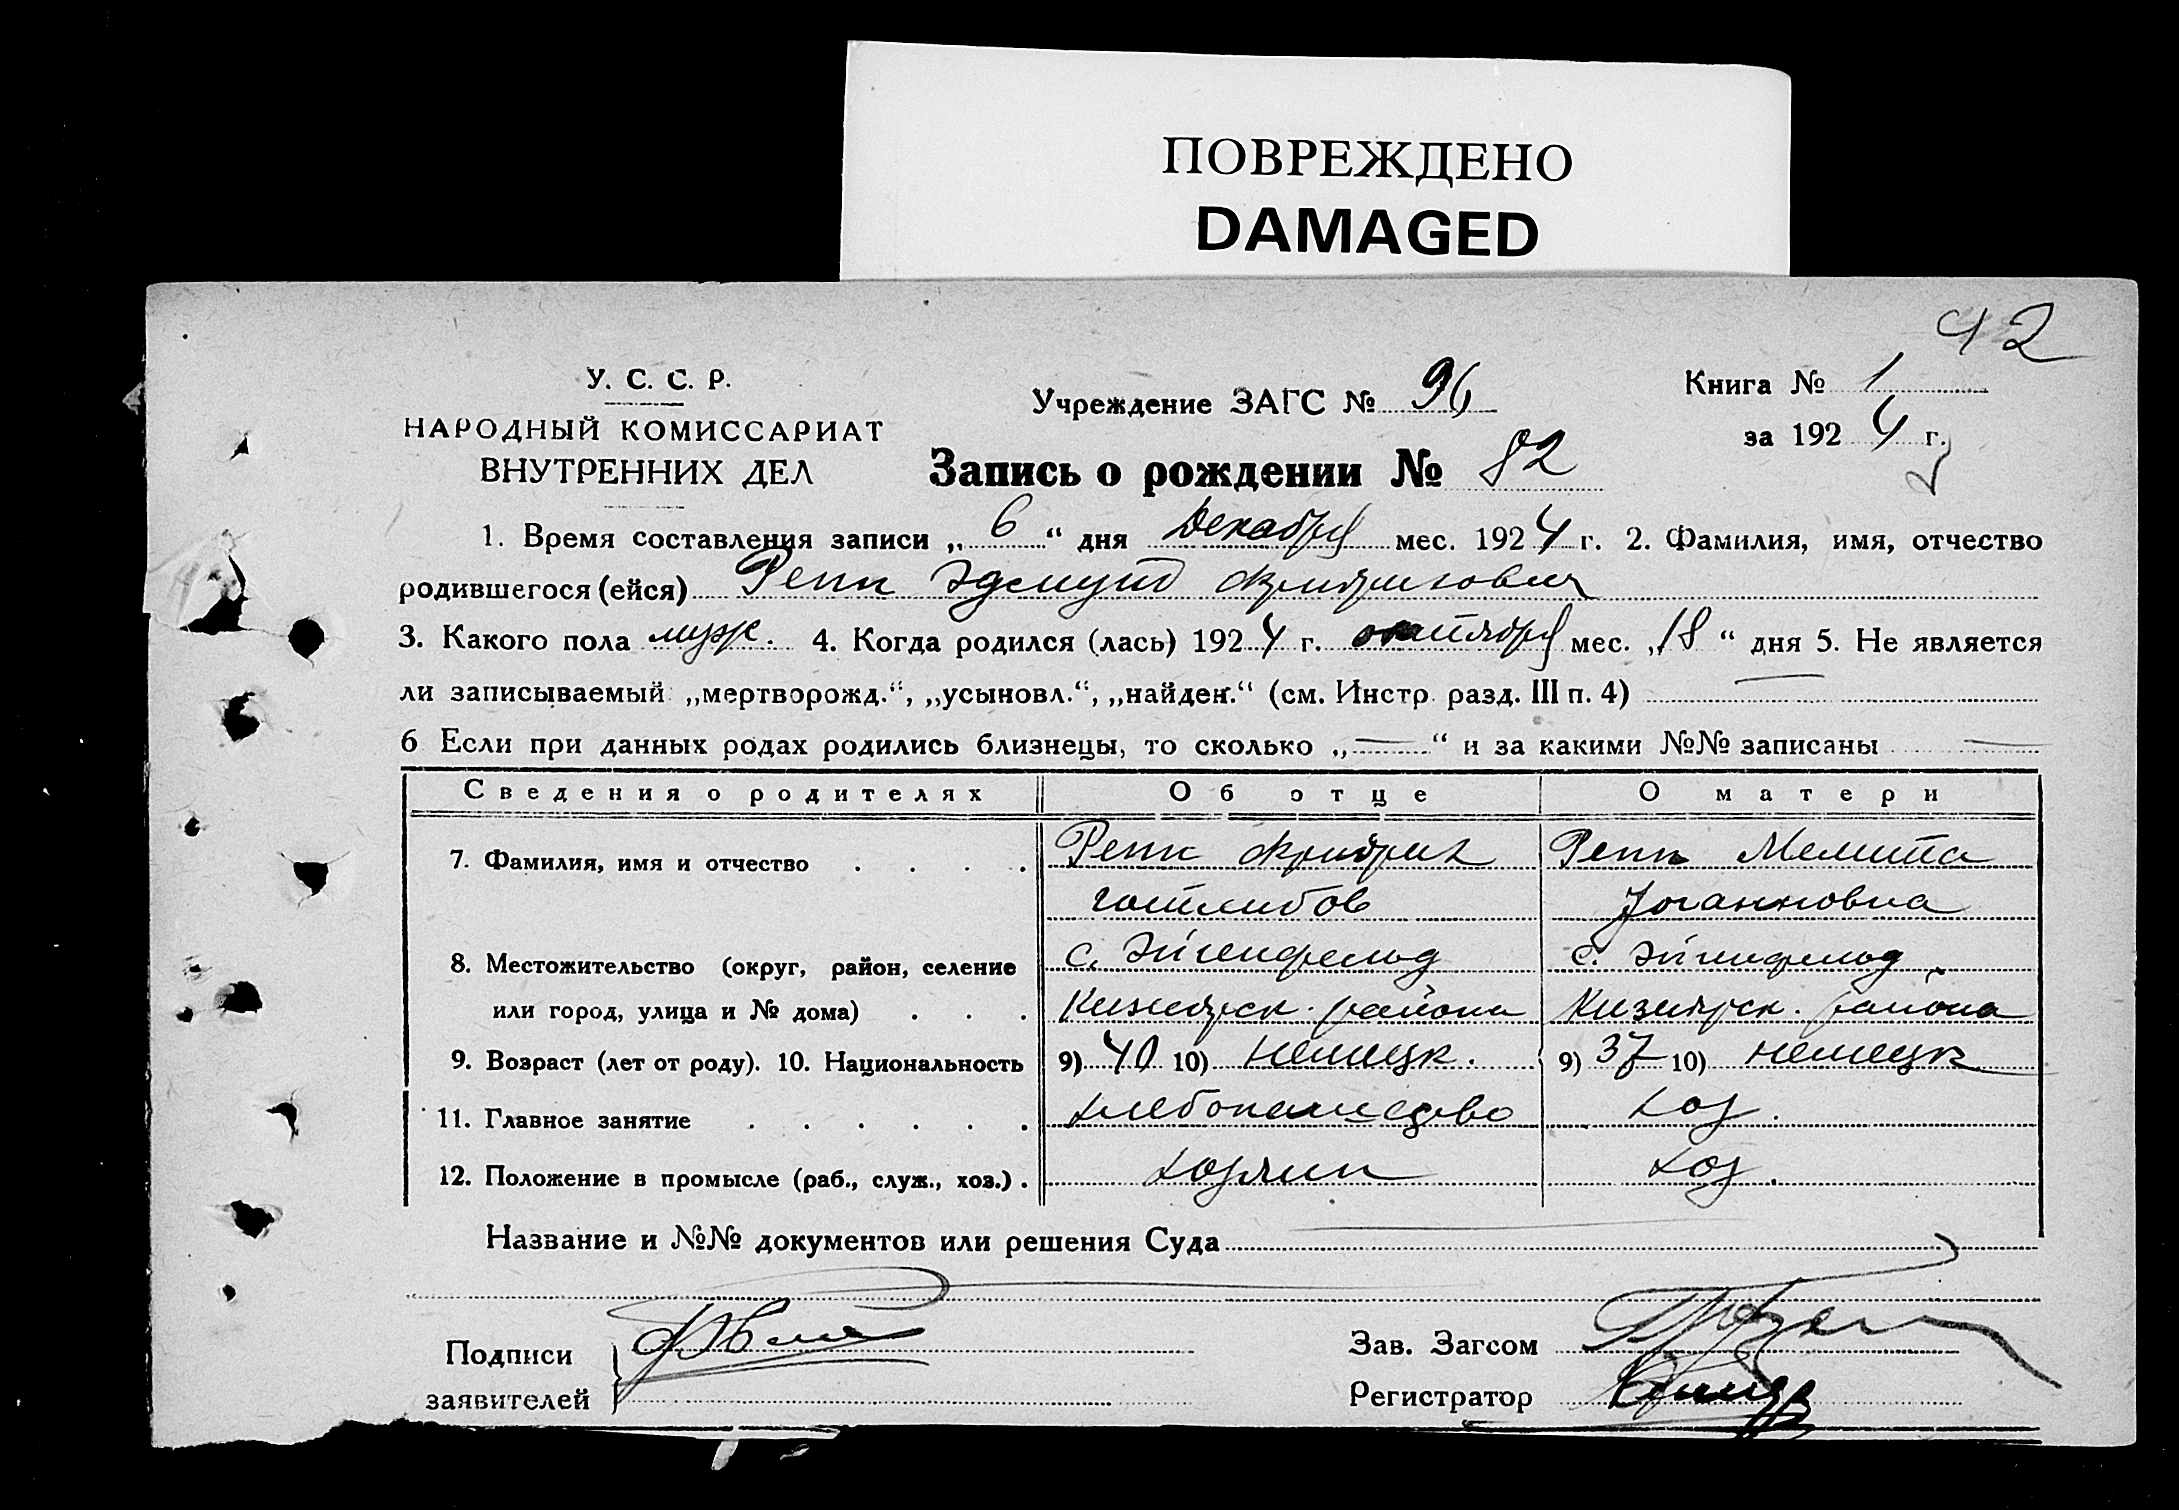 ПОВРЕЖДЕНО
DAMAGED
42
У. С. С. Р.
НАРОДНЫЙ КОМИССАРИАТ
ВНУТРЕННИХ ДЕЛ
Учреждение ЗАГС № 96
Книга № 1
за 1924 г.
Запись о рождении № 82
1. Время составления записи „ 6 “ дня Декабря мес. 1924 г. 2. Фамилия, имя, отчество
родившегося (ейся) Репп Эдмунд Фридрихович
3. Какого пола муж. 4. Когда родился (лась) 1924 г. октября мес. „18 “ дня 5. Не является
ли записываемый „мертворожд.“, „усыновл.“, „найден.“ (см. Инстр. разд. III п. 4) —
6 Если при данных родах родились близнецы, то сколько „—“ и за какими №№ записаны —
Сведения о родителях Об отце О матери
7. Фамилия, имя и отчество . . . . Репп Фридрих Репп Мелитта
Готлибов Иоганновна
8. Местожительство (округ, район, селение с. Эйгенфельд с. Эйгенфельд
или город, улица и № дома) . . . Кизиярск. района Кизиярск. района
9. Возраст (лет от роду). 10. Национальность 9) 40 10) немецк. 9) 37 10) немецк
11. Главное занятие . . . . . . хлебопашество хоз.
12. Положение в промысле (раб., служ., хоз.) . хозяин хоз.
Название и №№ документов или решения Суда
Подписи
заявителей
Зав. Загсом
Регистратор